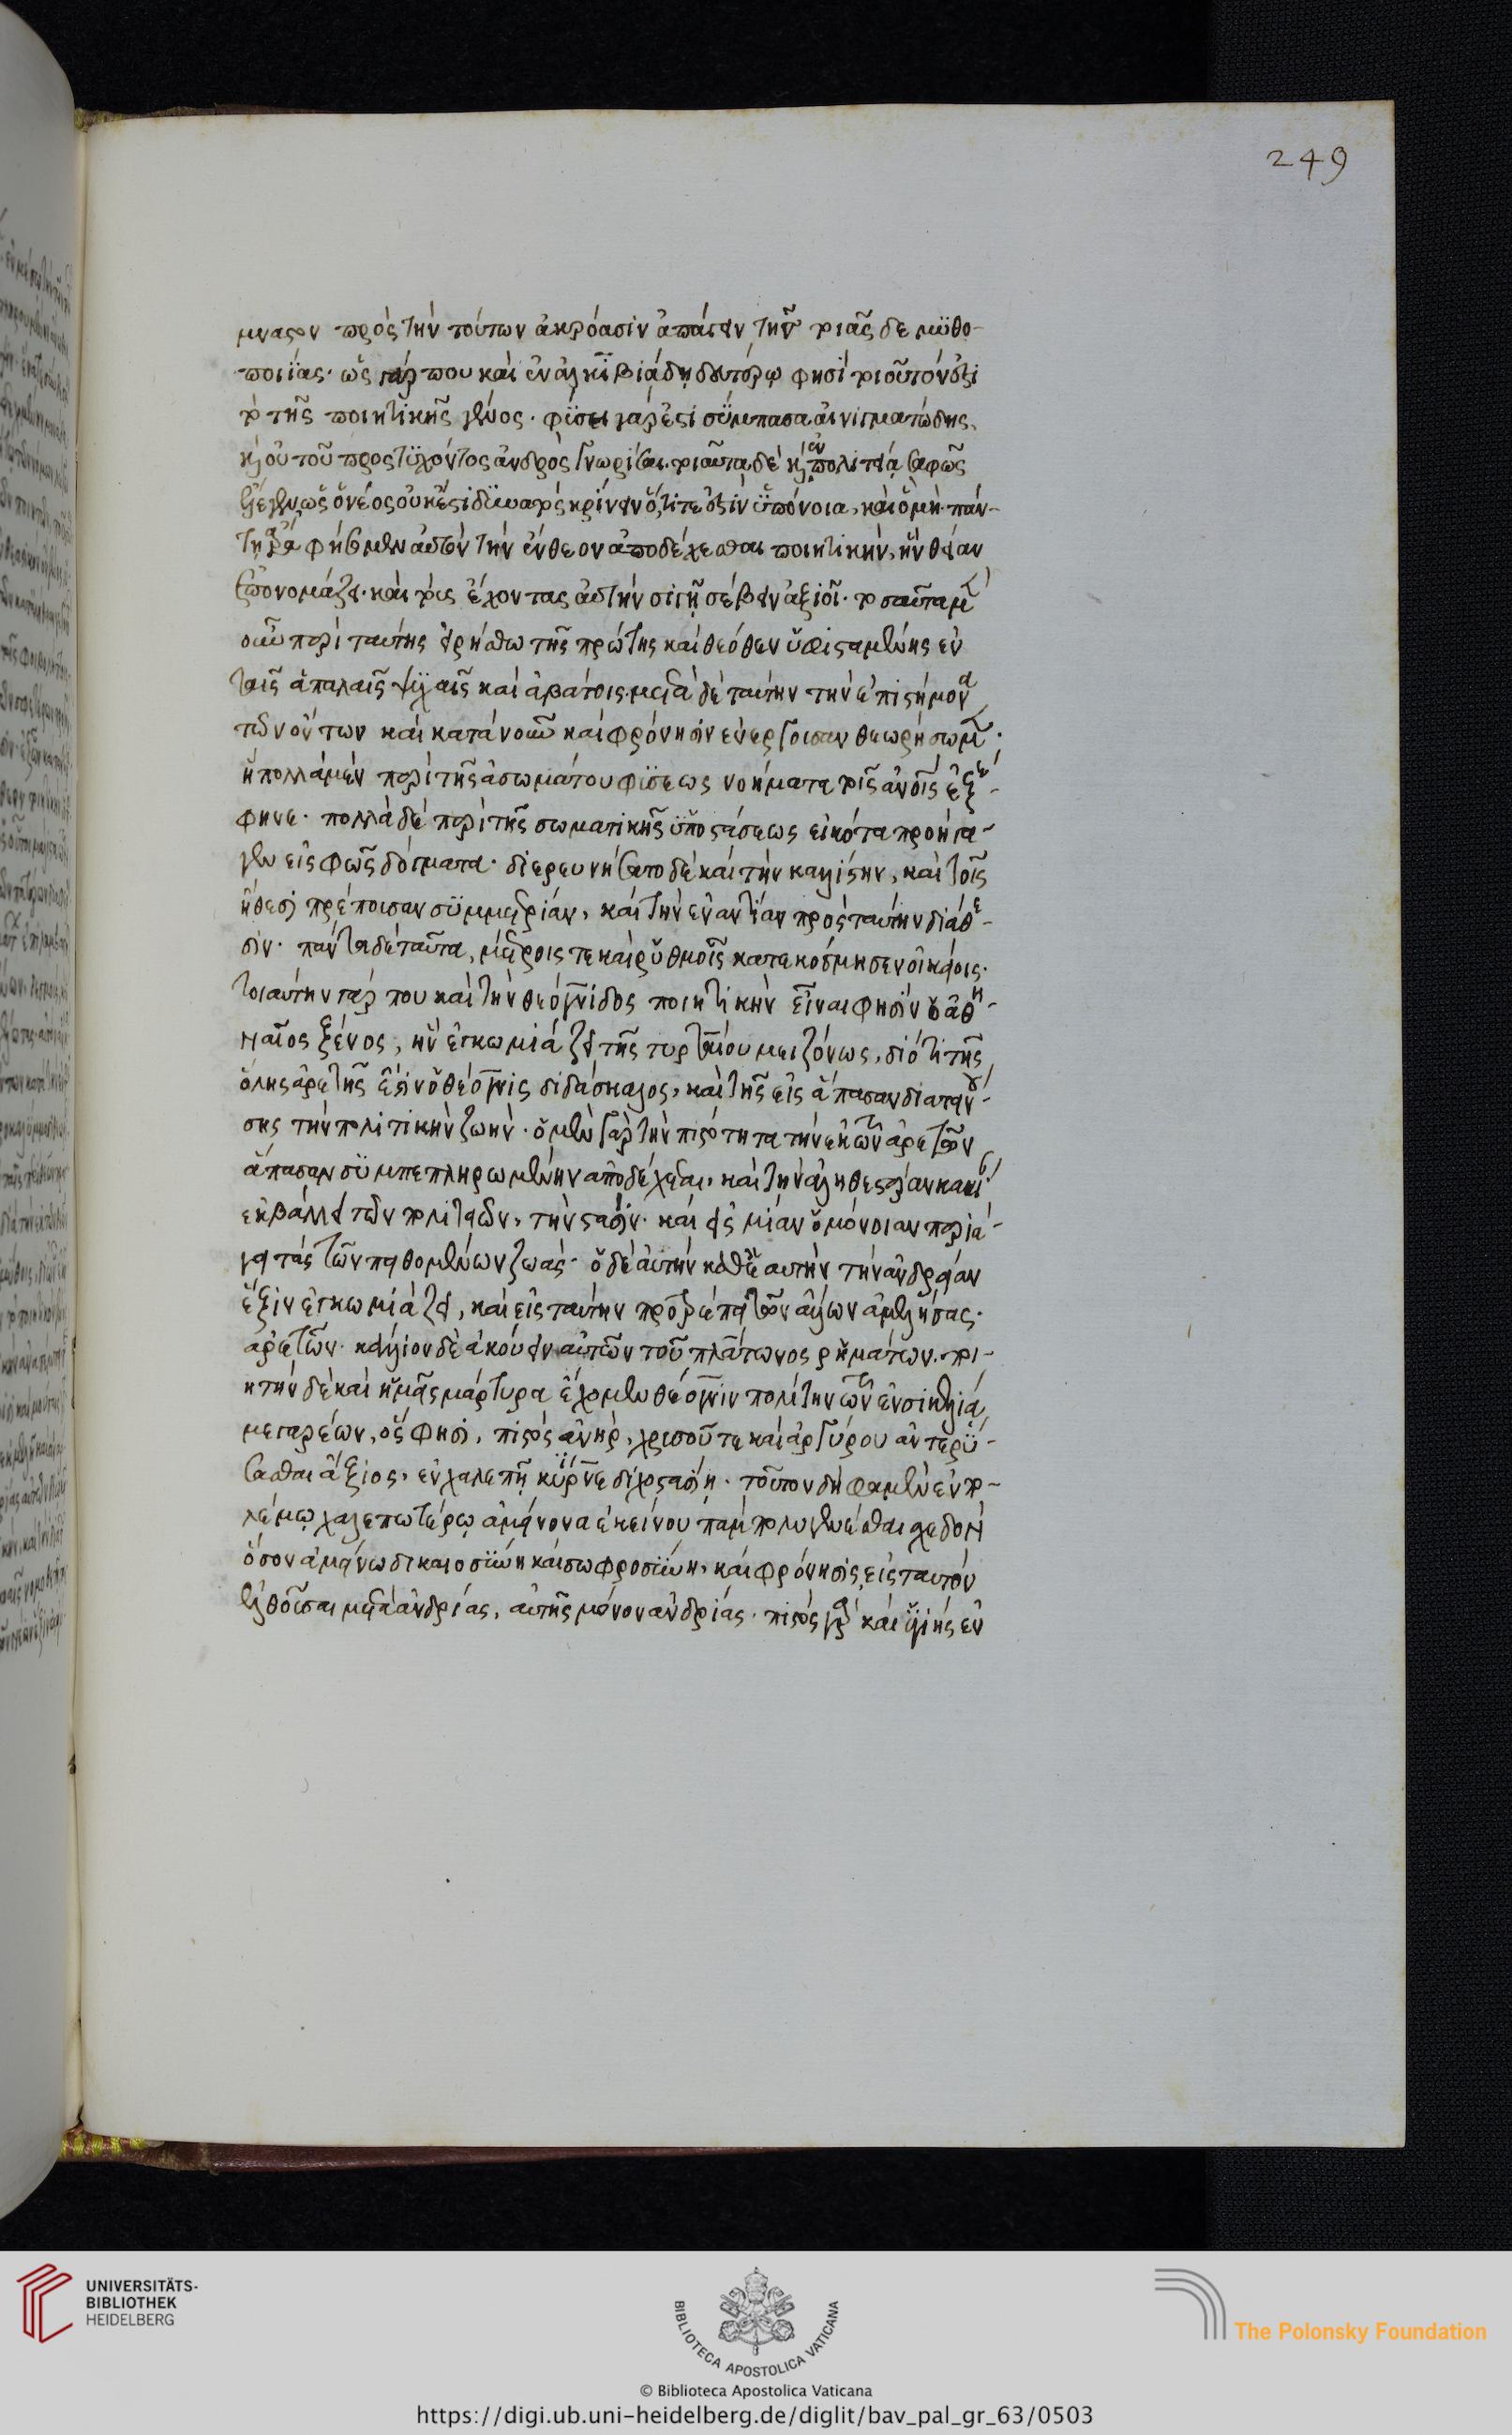 249
μναστον πρὸς τὴν τούτων ἀκρόασιν ἁπάσαν τῆς τοιᾶς δε μυθο-
ποιίας. ὡς γάρ που καὶ ἐν ἀλκιβιάδη δευτέρω φησὶ τοιοῦτόν ἐστι
τὸ τῆς ποιητικῆς γένος. φύσει γάρ ἐστι σύμπασα αἰνιγματώδης,
καὶ οὐ τοῦ προστυχόντος ἀνδρὸς γνωρίσαι. τοιαῦτα δὲ κἀν πολιτεία σαφῶς
ἔλεγεν ὡς ὁ νέος οὐκ ἐστὶ δυνατὸς κρίνειν ὅ,τι τέ ἐστιν ὑπόνοια, καὶ ὃ μή. παν-
τη ἄρα φήσομεν αὐτὸν τὴν ἔνθεον ἀποδέχεσθαι ποιητικὴν, ἣν θείαν
ἐπονομάζει. καὶ τοὺς ἔχοντας αὐτὴν σιγῆ σέβειν ἀξιοῖ. τοσαῦτα μὲν
οὖν περὶ ταύτης εἰρήσθω τῆς πρώτης καὶ θεόθεν ὑφισταμένης ἐν
ταῖς ἁπαλαῖς ψυχαῖς καὶ ἀβάτοις. μετὰ δὲ ταύτην τὴν ἐπιστήμονα
τῶν ὄντων καὶ κατὰ νοῦν καὶ φρόνησιν ἐνεργοῦσαν θεωρήσωμεν.
ἣ πολλὰ μὲν περὶ τῆς ἀσωμάτου φύσεως νοήματα τοῖς ἀνοις ἐξέ-
φηνε. πολλὰ δὲ περὶ τῆς σωματικῆς ὑποστάσεως εἰκότα προήγα-
γεν εἰς φῶς δόγματα. διερευνήσατο δὲ καὶ τὴν καλλίστην, καὶ τοῖς
ἤθεσι πρέπουσαν συμμετρίαν, καὶ τὴν ἐναντίαν πρὸς ταύτην διάθε-
σιν. πάντα δὲ ταῦτα, μέτροις τε καὶ ῥυθμοῖς κατεκόσμησεν οἰκείοις.
τοιαύτην γάρ που καὶ τὴν θεόγνιδος ποιητικὴν εἶναι φησὶν ὁ ἀθη-
ναῖος ξένος, ἣν ἐγκωμιάζει τῆς τυρταίου μειζόνως, διότι τῆς
ὅλης ἀρετῆς ἐστὶν ὁ θέογνις διδάσκαλος, καὶ τῆς εἰς ἅπασαν διατεινού-
σης τὴν πολιτικὴν ζωήν. ὁ μὲν γὰρ τὴν πιστότητα τὴν ἐκ τῶν ἀρετῶν
ἅπασαν συμπεπληρωμένην ἀποδέχεται, καὶ τὴν ἀληθεστέραν κακί
ἐκβάλλει τῶν πολιτειῶν, τὴν στάσιν. καὶ εἰς μίαν ὁμόνοιαν περιά-
γει τὰς τῶν πειθομένων ζωάς. ὁ δὲ αὐτὴν καθ' ἑαυτὴν τὴν ἀνδρείαν
ἕξιν ἐγκωμιάζει, καὶ εἰς ταύτην προτρέπει τῶν ἄλλων ἀμελήσας.
ἀρετῶν. κάλλιον δὲ ἀκούειν αὐτῶν τοῦ πλάτωνος ῥημάτων. ποι-
ητὴν δὲ καὶ ἡμεῖς μάρτυρα ἔχομεν θέογνιν πολίτην τῶν ἐν σικελία
μεγαρέων, ὅς φησι, πιστὸς ἀνὴρ, χρυσοῦ τε καὶ ἀργύρου ἀντερύ-
σασθαι ἄξιος, ἐν χαλεπῆ κύρνε διχοστασίη. τοῦτον δή φαμεν ἐν πο-
λέμω χαλεπωτέρω ἀμείνονα ἐκείνου πάμπολυ γενέσθαι σχεδὸν
ὅσον ἀμείνω δικαιοσύνη καὶ σωφροσύνη, καὶ φρόνησις, εἰς ταυτὸν
ἐλθοῦσαι μετὰ ἀνδρίας, αὐτῆς μόνον ἀνδρίας. πιστὸς γὰρ καὶ ὑγιὴς ἐν
UNIVERSITÄTS-
BIBLIOTHEK
HEIDELBERG
BIBLIOTECA APOSTOLICA VATICANA
The Polonsky Foundation
© Biblioteca Apostolica Vaticana
https://digi.ub.uni-heidelberg.de/diglit/bav_pal_gr_63/0503